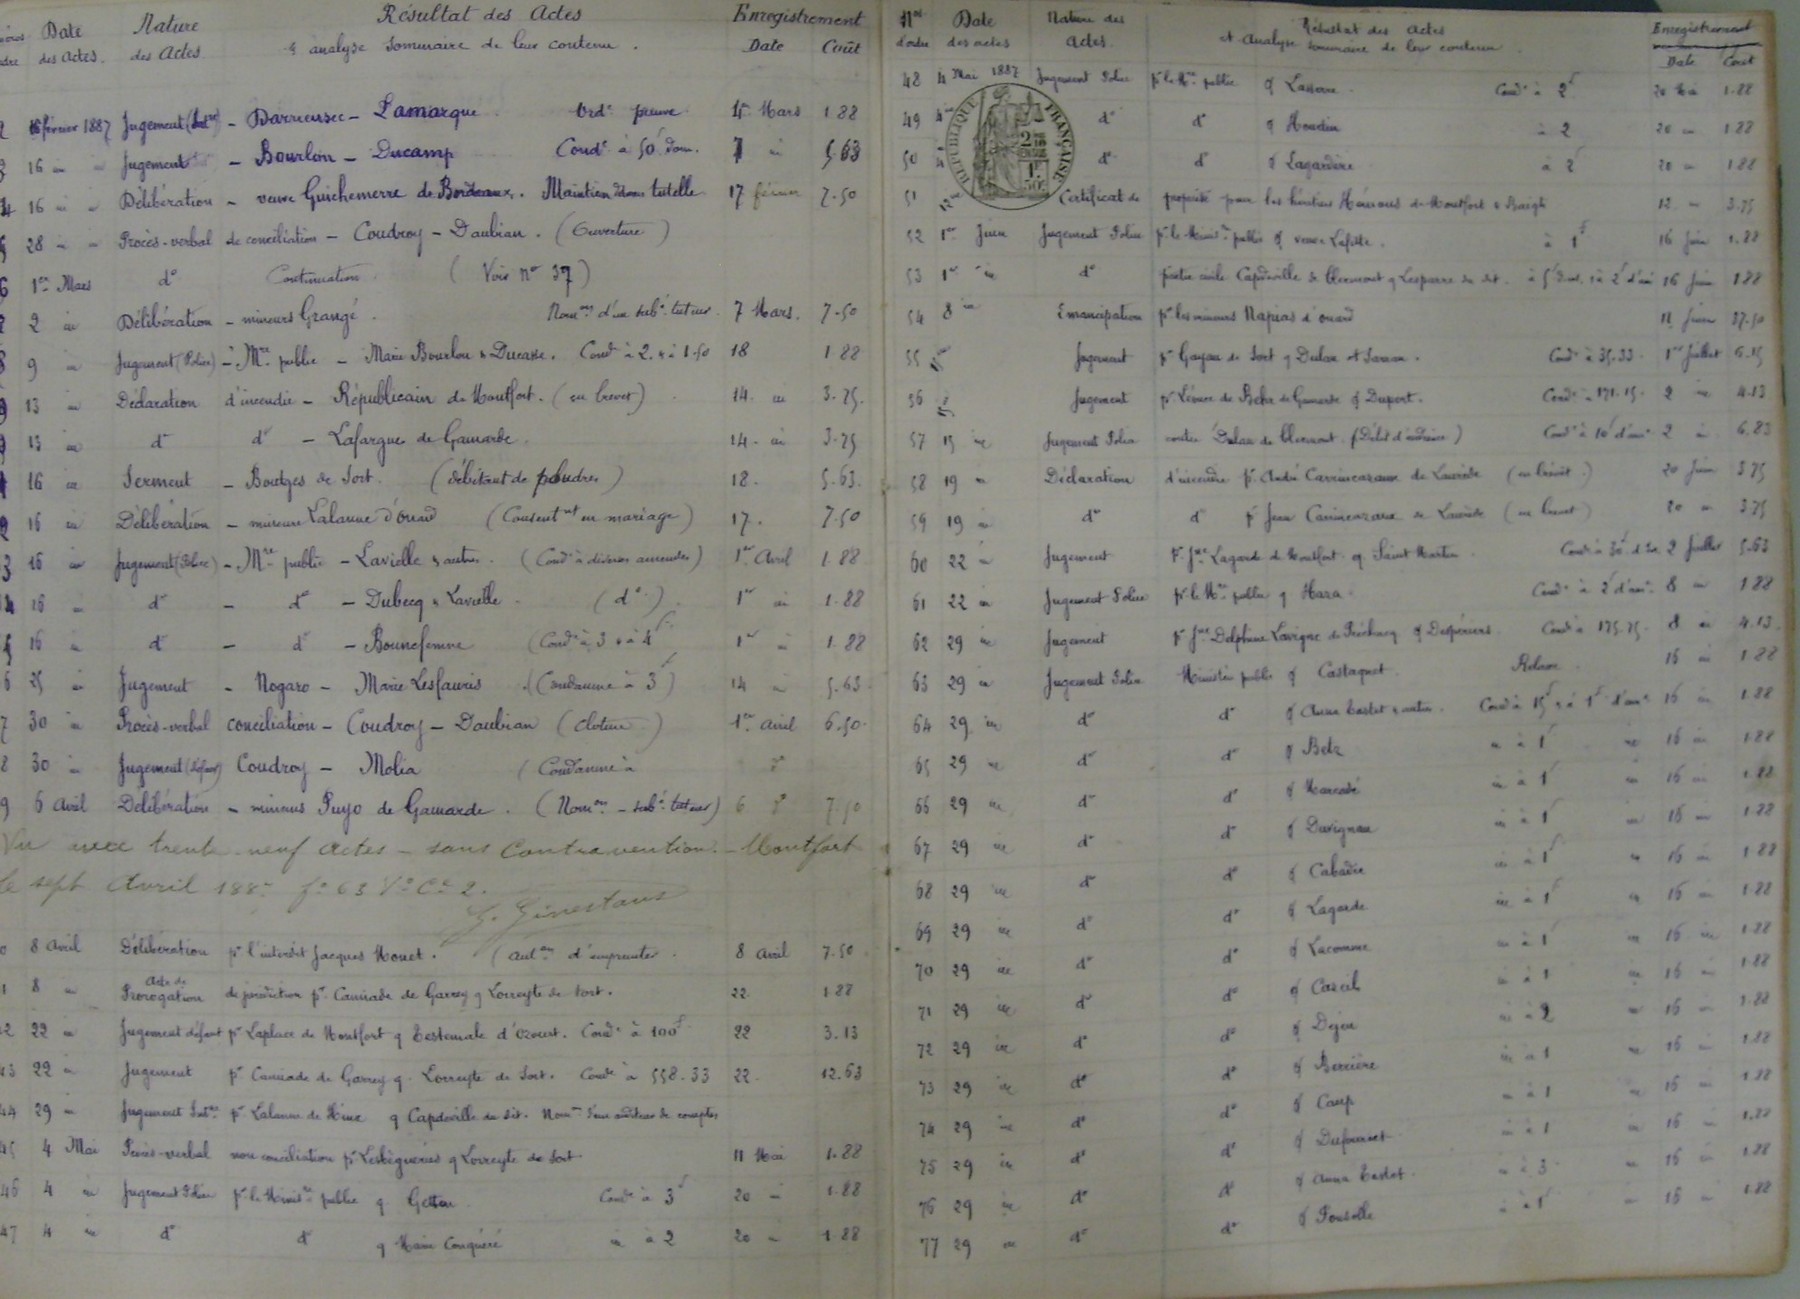 Date Nature Résultat des Actes Enregistrement
des Actes. des Actes & analyse sommaire de leur contenu. Date Coût
16 février 1887 Jugement - Darrieussec - Lamarque Ord. preuve 15 Mars 1.88
16 Jugement - Bourlon - Ducamp Cond. à 50f dom. 7 5.63
16 Délibération - veuve Guichemerre de Bordeaux. Maintien dans tutelle 17 février 7.50
28 Procès-verbal de conciliation - Coudroy - Daubian. (Ouverture)
6 1er Mars do Continuation (Voir no 37)
2 Délibération - mineurs Grangé. d'un sub. tuteur 7 Mars. 7.50
9 Jugement (Police) - Mre public - Marie Bourlon & Ducasse. Cond. à 2. & à 1.50 18 1.88
13 Déclaration d'incendie - Républicain de Montfort. (en brevet) 14 3.75.
13 do do - Lafargue de Gamarde. 14 3.75
16 Serment - Boutges de Sort. (débitant de poudres) 18. 5.63.
16 Délibération - mineure Lalanne d'Onard (Consentnt en mariage) 17. 7.50
3 16 Jugement (Police) - Mre public - Lavielle & autres. (Cond. à diverses amendes) 1er Avril 1.88
16 do - do - Dubecq & Lavielle. (do) 1er 1.88
16 do - do - Bonnefemme (Cond. à 3 & à 4f) 1er 1.88
6 25 Jugement - Nogaro - Marie Lesfauris (Condamne à 3f) 14 5.63
7 30 Procès-verbal conciliation - Coudroy - Daubian (Cloture) 1er Avril 6.50
8 30 Jugement (défaut) Coudroy - Molia (Condamne à
9 6 Avril Délibération - mineurs Puyo de Gamarde. (Nomon - sub. tuteur) 6 7.50
Vu avec trente-neuf actes - sans contravention. - Montfort
le sept Avril 188 fo 63 Vo Ce 2.
G. Ginestans
8 Avril Délibération pr l'interdit Jacques Monet. (auton d'emprunter. 8 Avril 7.50
8 Acte de Prorogation de juridiction pr Caniade de Garrey q Lorreyte de Sort. 22 1.88
22 Jugement défaut pr Laplace de Montfort q Testemale d'Ozourt. Cond. à 100f 22 3.13
43 22 Jugement pr Caniade de Garrey q. Lorreyte de Sort. Cond. à 558.33 22. 12.63
44 29 Jugement pr Lalanne de Hinx q Capdeville du dit.
45 4 Mai Procès-verbal non conciliation pr Lesbégueries q Lorreyte de Sort 11 Mai 1.88
46 4 Jugement Police pr le public q Cond. à 3f 20 1.88
47 4 do do q Marie Conquéré à 2 20 1.88
Nos Date Nature des Résultat des Actes Enregistrement
d'ordre des actes Actes. et Analyse sommaire de leur contenu. Date Coût
48 4 Mai 1887 Jugement Police pr le Mre public q Lasserre Cond. à 2f 20 Mai 1.88
RÉPUBLIQUE FRANÇAISE
49 do do q Houdin à 2 20 1.88
50 do do q Lagardère à 2f 20 1.88
51 Certificat de propriété pour les héritiers de Montfort & Baigts 12 3.75
52 1er Juin Jugement Police pr le public q veuve Lafitte. à 1f 16 Juin 1.88
53 1er do partie civile Capdeville de Clermont q Lesparre du dit. 16 Juin 1.88
54 8 Emancipation pr les mineurs Napias d'Onard 11 Juin 37.50
55 Jugement pr de Sort q Dulau et Cond. à 35.33. 1er Juillet 6.15
56 Jugement pr de Gamarde q Dupont. Cond. à 171.15. 2 4.13
57 15 Jugement Police contre Dulau de Clermont. Cond. à 10f 2 6.83
58 19 Déclaration d'incendie pr André de Laurède (en brevet) 20 Juin 3.75
59 19 do do pr Jean de Laurède (en brevet) 20 3.75
60 22 Jugement pr Lagarde de Montfort q. Saint Martin 2 Juillet 5.63
61 22 Jugement Police pr le Mre public q Mara. Cond. à 2f 8 1.88
62 29 Jugement pr Delphine Lavigne de Préchacq q Despériers. Cond. à 175.75. 8 4.13
63 29 Jugement Police Ministère public q Castagnet. Relaxe. 16 1.88
64 29 do do q Anna Castet & autre. Cond. à 15f & à 1f 16 1.88
65 29 do do q Betz à 1f 16 1.88
66 29 do do q Marcadé à 1f 16 1.88
67 29 do do q Duvignau à 1f 16 1.88
68 29 do do q Cabadie à 1f 16 1.88
69 29 do do q Lagarde à 1f 16 1.88
70 29 do do q Lacomme à 1f 16 1.88
71 29 do do q Cazeils à 1 16 1.88
72 29 do do q Dejeu à 2 16 1.88
73 29 do do q Berrière à 1 16 1.88
74 29 do do q Camp à 1 16 1.88
75 29 do do q Dufourcet à 1 16 1.88
76 29 do do q Anna Castet. à 3 16 1.88
77 29 do do q Pouselle à 1f 16 1.88